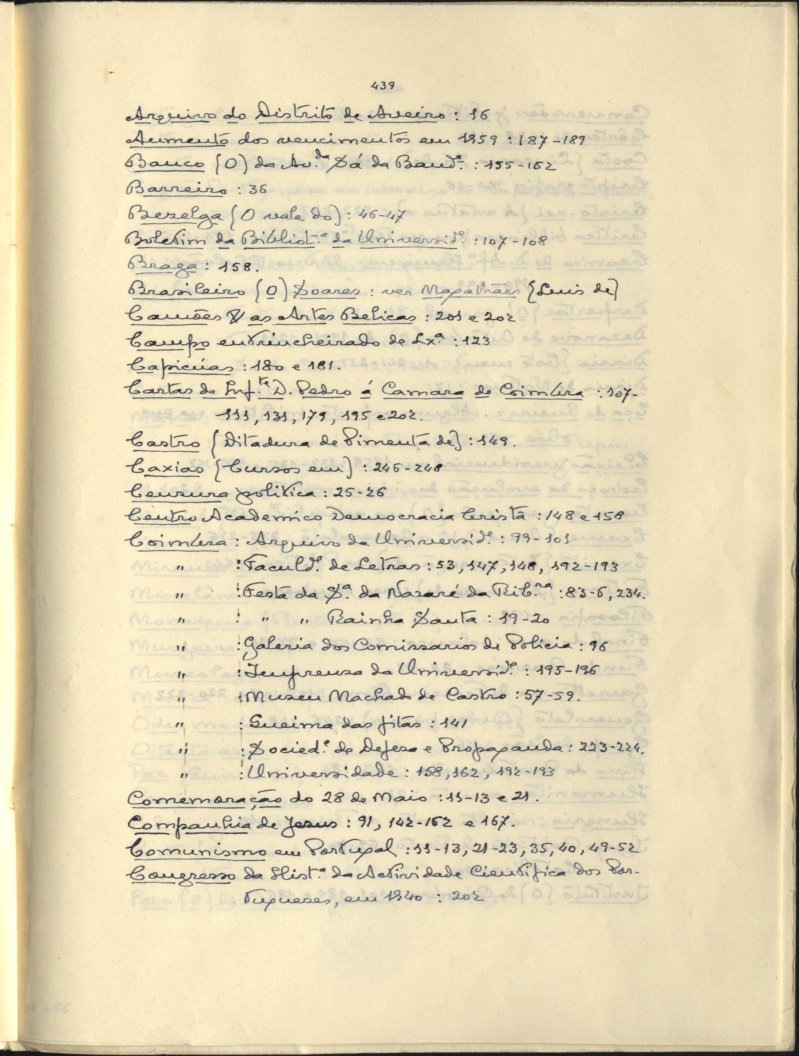 439
Arquivo do Distrito de Aveiro : 16
Aumento dos vencimentos em 1959 : 187-189
Banco (O) da Av.da Sá da Band.ª : 155-162
Barreiro : 36
Bezelga (O vale do) : 46-47
Boletim da Bibliot.ª da Universid.e : 107-108
Braga : 158.
Brasileiro (O) Soares : ver Magalhães (Luis de)
Camões & as Artes Belicas : 201 e 202
Campo entrincheirado de Lxª : 123
Capicúas : 180 e 181.
Cartas do Inf.te D. Pedro á Camara de Coimbra : 107-
111, 131, 179, 195 e 202.
Castro (Ditadura de Pimenta de) : 149.
Caxias (Cursos em) : 246-248
Censura politica : 25-26
Centro Academico Democracia Cristã : 148 e 158
Coimbra : Arquivo da Universid.e : 99-101
" : Faculd.e de Letras : 53, 147, 148, 192-193
" : Festa da S.ª da Nazaré da Rib.ra : 83-6, 234.
" : " " Rainha Santa : 19-20
" : Galeria dos Comissarios de Policia : 96
" : Imprensa da Universid.e : 195-196
" : Museu Machado de Castro : 57-59.
" : Queima das fitas : 141
" : Socied.e de Defesa e Propaganda : 223-224.
" : Universidade : 158, 162, 192-193
Comemoração do 28 de Maio : 11-13 e 21.
Companhia de Jesus : 91, 142-162 e 167.
Comunismo em Portugal : 11-13, 21-23, 35, 40, 49-52
Congresso da Hist.ª da Actividade Cientifica dos Por-
tugueses, em 1940 : 202